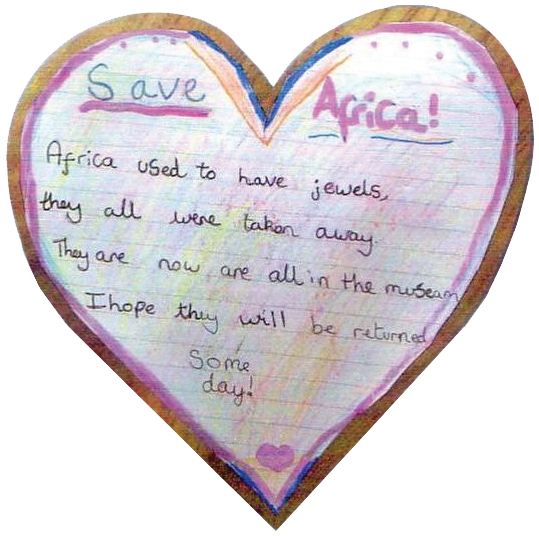 Save Africa!
Africa used to have jewels,
they all were taken away.
They are now are all in the museam
I hope they will be returned
Some
day!